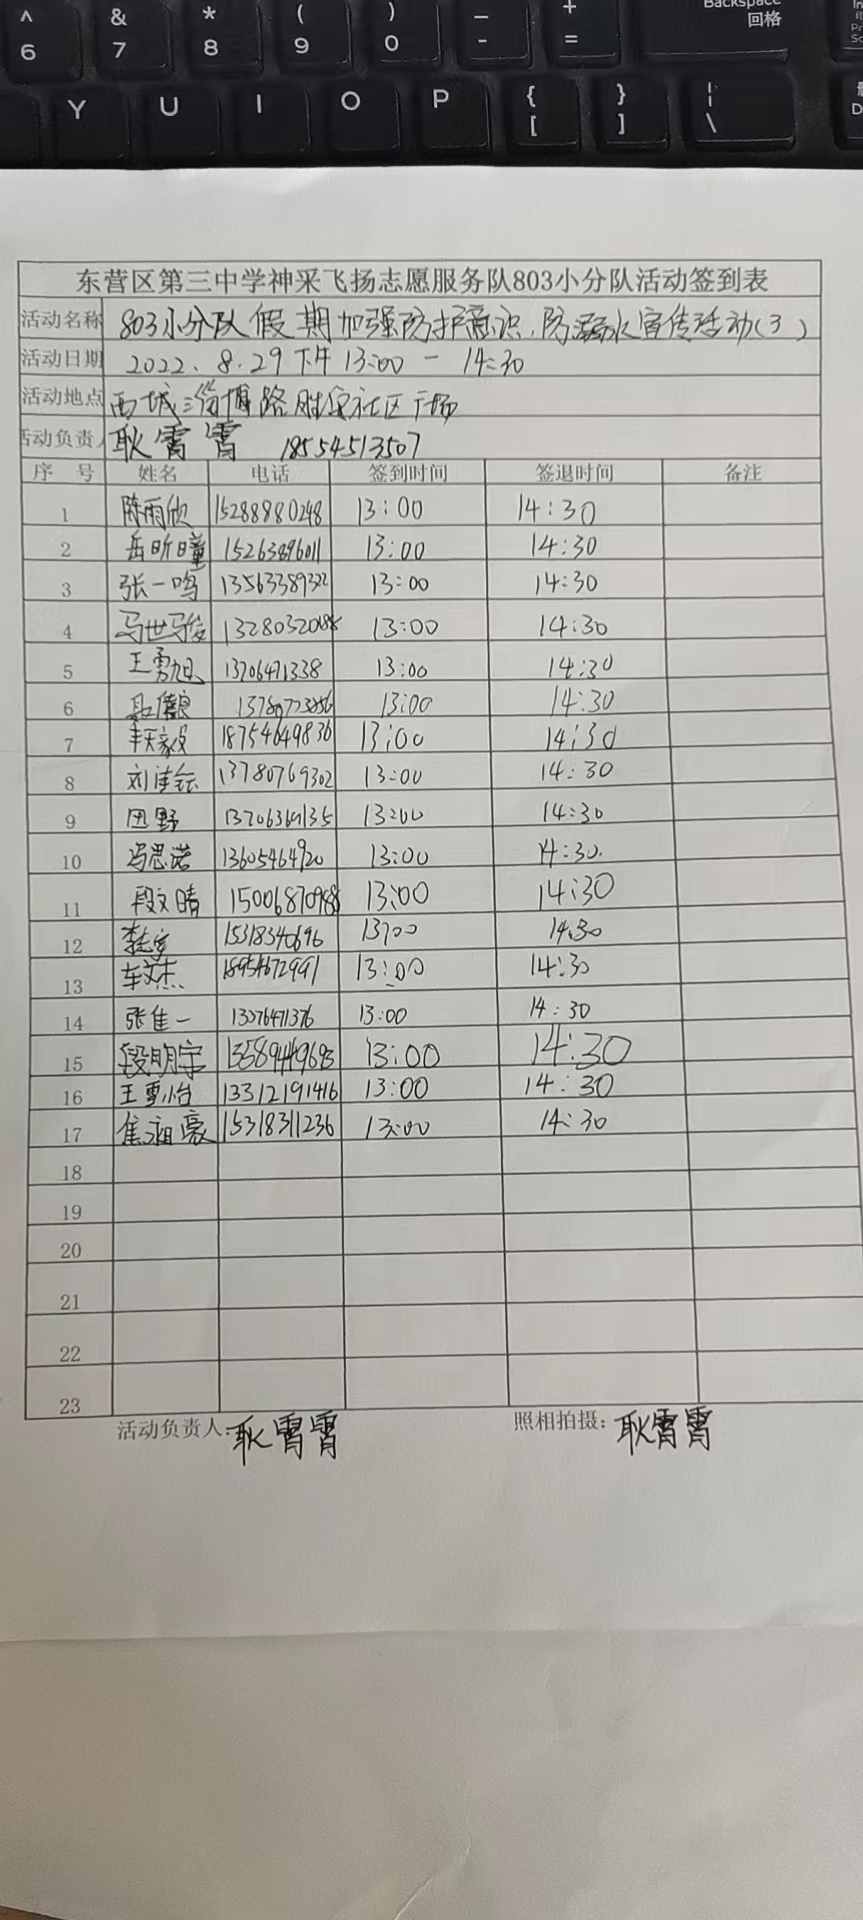 ^ & * ( ) _ + Backspace
6 7 8 9 0 - = 回格
Y U I O P { } |
[ ] \
东营区第三中学神采飞扬志愿服务队803小分队活动签到表
活动名称 803小分队假期加强防护意识,防溺水宣传活动(3)
活动日期 2022.8.29下午13:00-14:30
活动地点 西城淄博路胜安社区广场
活动负责人 耿霄霄 18554513507
序 号 姓名 电话 签到时间 签退时间 备注
1 陈雨欣 15288880248 13:00 14:30
2 岳昕曈 15263896011 13:00 14:30
3 张一鸣 13563389322 13:00 14:30
4 马世骏 13:00 14:30
5 王勇旭 13706471338 13:00 14:30
6 13:00 14:30
7 18754649836 13:00 14:30
8 13780769302 13:00 14:30
9 田野 13:00 14:30
10 冯思诺 13605464920 13:00 14:30.
11 段文晴 15006870988 13:00 14:30
12 15318340696 13:00 14:30
13 车文杰 18954672991 13:00 14:30
14 张佳一 13:00 14:30
15 段明宇 13589449693 13:00 14:30
16 王雪怡 13312191416 13:00 14:30
17 焦湘豪 15318311236 13:00 14:30
18
19
20
21
22
23
活动负责人:耿霄霄 照相拍摄:耿霄霄